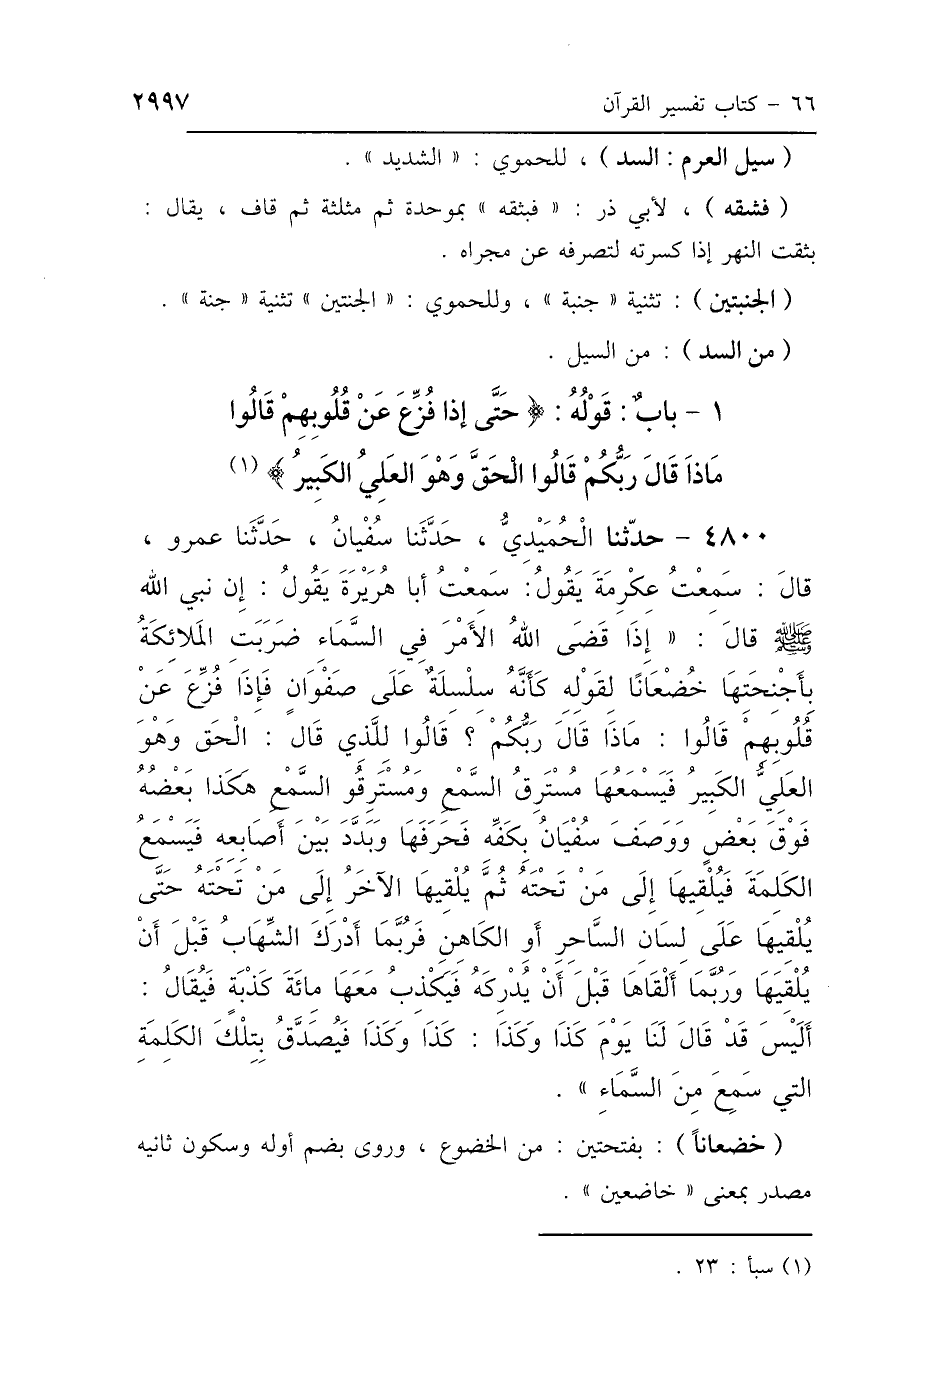 ٦٦ - كتاب تفسير القرآن ٢٩٩٧
( سيل العرم : السد ) ، للحموي : « الشديد » .
( فشقه ) ، لأبي ذر : « فبثقه » بموحدة ثم مثلثة ثم قاف ، يقال :
بثقت النهر إذا كسرته لتصرفه عن مجراه .
( الجنبتين ) : تثنية « جنبة » ، وللحموي : « الجنتين » تثنية « جنة » .
( من السد ) : من السيل .
١ - بابٌ : قَوْلُهُ : ﴿ حَتَّى إِذا فُزِّعَ عَنْ قُلُوبِهِمْ قَالُوا
مَاذَا قَالَ رَبُّكُمْ قَالُوا الْحَقَّ وَهْوَ العَلِيُ الكَبِيرُ ﴾ (١)
٤٨٠٠ - حدّثنا الْحُمَيْدِيُّ ، حَدَّثَنا سُفْيانُ ، حَدَّثَنا عمرو ،
قالَ : سَمِعْتُ عِكْرِمَةَ يَقُولُ : سَمِعْتُ أبا هُرَيْرَةَ يَقُولُ : إن نبي الله
ﷺ قالَ : « إِذَا قَضَى اللهُ الأَمْرَ فِي السَّمَاءِ ضَرَبَتِ المَلائِكَةُ
بِأَجْنِحَتِهَا خُضْعَانًا لِقَوْلِهِ كَأَنَّهُ سِلْسِلَةٌ عَلَى صَفْوَانٍ فَإِذَا فُزِّعَ عَنْ
قُلُوبِهِمْ قَالُوا : مَاذَا قَالَ رَبُّكُمْ ؟ قَالُوا لِلَّذِي قَالَ : الْحَق وَهْوَ
العَلِيُّ الكَبِيرُ فَيَسْمَعُهَا مُسْتَرِقُ السَّمْعِ وَمُسْتَرِقُو السَّمْعِ هكَذا بَعْضُهُ
فَوْقَ بَعْضٍ وَوَصَفَ سُفْيَانُ بِكَفِّهِ فَحَرَفَهَا وَبَدَّدَ بَيْنَ أَصَابِعِهِ فَيَسْمَعُ
الكَلِمَةَ فَيُلْقِيهَا إِلَى مَنْ تَحْتَهُ ثُمَّ يُلْقِيهَا الآخَرُ إِلَى مَنْ تَحْتَهُ حَتَّى
يُلْقِيهَا عَلَى لِسَانِ السَّاحِرِ أَوِ الكَاهِنِ فَرُبَّمَا أَدْرَكَ الشِّهَابُ قَبْلَ أَنْ
يُلْقِيَهَا وَرُبَّمَا أَلْقَاهَا قَبْلَ أَنْ يُدْرِكَهُ فَيَكْذِبُ مَعَهَا مِائَةَ كَذْبَةٍ فَيُقَالُ :
أَلَيْسَ قَدْ قَالَ لَنَا يَوْمَ كَذَا وَكَذَا : كَذَا وَكَذَا فَيُصَدَّقُ بِتِلْكَ الكَلِمَةِ
التي سَمِعَ مِنَ السَّمَاءِ » .
( خضعاناً ) : بفتحتين : من الخضوع ، وروى بضم أوله وسكون ثانيه
مصدر بمعنى « خاضعين » .
(١) سبأ : ٢٣ .